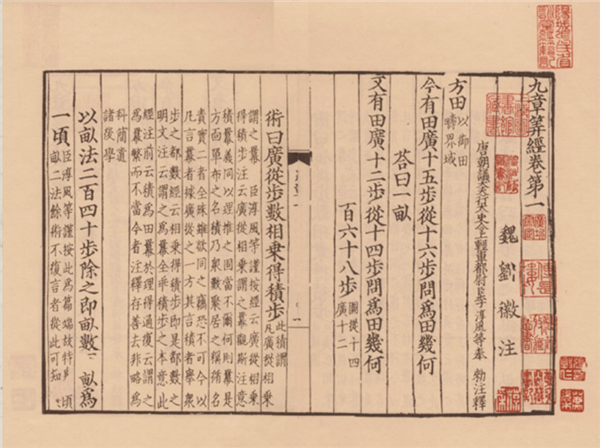 九章筭經卷第一
魏 劉 徽 注
唐朝議大夫行太史令上輕車都尉臣李淳風等奉 勑注釋
方田 以御田
疇界域
今有田廣十五步從十六步問爲田幾何
荅曰一畝
又有田廣十二步從十四步問爲田幾何
一百六十八步 圖從十四
廣十二
術曰廣從步數相乘得積步 此積謂
凡廣從相乘
謂之冪 臣淳風等謹按經云廣從相乘
得積步注云廣從相乘謂之冪觀斯注意
積冪義同以理推之固當不爾何則冪是
方面單布之名積乃衆數聚居之稱循名
責實二者全殊雖欲同之竊恐不可今以
凡言冪者據廣從之一方其言積者舉衆
步之都數經云相乘得積步即是都數之
明文注云謂之爲冪全乖積步之本意此
經注前云積爲田冪於理得通復云謂之
爲冪繁而不當今者注釋存善去非略爲
科簡遺
諸後學
以畝法二百四十步除之即畝數 畝爲
一頃 臣淳風等謹按此爲篇端故特舉頃
畝二法餘術不復言者從此可知